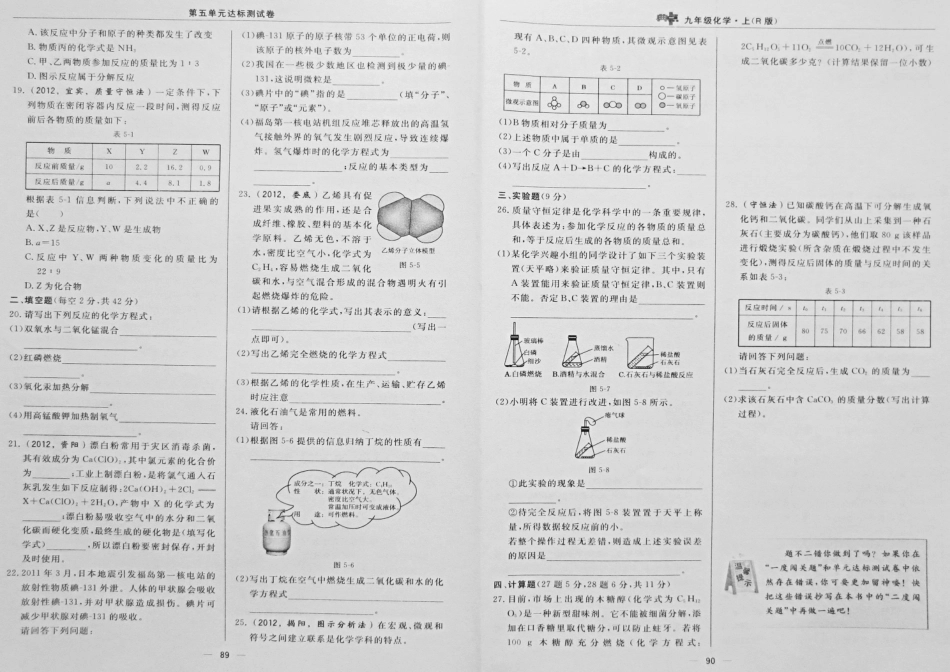 第五单元达标测试卷
A.该反应中分子和原子的种类都发生了改变
B.物质丙的化学式是 NH₃
C.甲、乙两物质参加反应的质量比为1:3
D.图示反应属于分解反应
19.(2012,宜宾,质量守恒法)一定条件下,下
列物质在密闭容器内反应一段时间,测得反应
前后各物质的质量如下:
表 5-1
物 质 X Y Z W
反应前质量/g 10 2.2 16.2 0.9
反应后质量/g a 4.4 8.1 1.8
根据表 5-1 信息判断,下列说法中不正确的
是( )
A.X、Z是反应物,Y、W是生成物
B.a=15
C.反应中 Y、W 两种物质变化的质量比为
22:9
D.Z为化合物
二、填空题(每空2分,共42分)
20.请写出下列反应的化学方程式:
(1)双氧水与二氧化锰混合
(2)红磷燃烧
(3)氧化汞加热分解
(4)用高锰酸钾加热制氧气
21.(2012,贵阳)漂白粉常用于灾区消毒杀菌,
其有效成分为Ca(ClO)₂,其中氯元素的化合价
为 ;工业上制漂白粉,是将氯气通入石
灰乳发生如下反应制得:2Ca(OH)₂+2Cl₂ ══
X+Ca(ClO)₂+2H₂O,产物中 X 的化学式为
;漂白粉易吸收空气中的水分和二氧
化碳而硬化变质,最终生成的硬化物是(填写化
学式) ,所以漂白粉要密封保存,开封
及时使用。
22.2011年3月,日本地震引发福岛第一核电站的
放射性物质碘-131外泄。人体的甲状腺会吸收
放射性碘-131,并对甲状腺造成损伤。碘片可
减少甲状腺对碘-131的吸收。
请回答下列问题:
89
(1)碘-131原子的原子核带53个单位的正电荷,则
该原子的核外电子数为 。
(2)我国在一些极少数地区也检测到极少量的碘-
131,这说明微粒是 。
(3)碘片中的“碘”指的是 (填“分子”、
“原子”或“元素”)。
(4)福岛第一核电站机组反应堆芯释放出的高温氢
气接触外界的氧气发生剧烈反应,导致连续爆
炸。氢气爆炸时的化学方程式为
;反应的基本类型为
。
23.(2012,娄底)乙烯具有促
进果实成熟的作用,还是合
成纤维、橡胶、塑料的基本化
学原料。乙烯无色,不溶于
水,密度比空气小,化学式为
C₂H₄,容易燃烧生成二氧化
碳和水,与空气混合形成的混合物遇明火有引
起燃烧爆炸的危险。
乙烯分子立体模型
图 5-5
(1)请根据乙烯的化学式,写出其表示的意义:
(写出一
点即可)。
(2)写出乙烯完全燃烧的化学方程式
。
(3)根据乙烯的化学性质,在生产、运输、贮存乙烯
时应注意 。
24.液化石油气是常用的燃料。
请回答:
(1)根据图 5-6 提供的信息归纳丁烷的性质有
。
成分之一:丁烷 化学式:C₄H₁₀
性 状:通常状况下,无色气体,
密度比空气大,
常温加压时可变成液体
用 途:可作燃料。
图 5-6
(2)写出丁烷在空气中燃烧生成二氧化碳和水的化
学方程式 。
25.(2012,揭阳,图示分析法)在宏观、微观和
符号之间建立联系是化学学科的特点。
九年级化学·上(R版)
现有 A、B、C、D 四种物质,其微观示意图见表
5-2。
表 5-2
物 质 A B C D
微观示意图
○—氢原子
—碳原子
—氧原子
(1)B物质相对分子质量为 。
(2)上述物质中属于单质的是 。
(3)一个C分子是由 构成的。
(4)写出反应 A+D→B+C 的化学方程式:
。
三、实验题(9分)
26.质量守恒定律是化学科学中的一条重要规律,
具体表述为:参加化学反应的各物质的质量总
和,等于反应后生成的各物质的质量总和。
(1)某化学兴趣小组的同学设计了如下三个实验装
置(天平略)来验证质量守恒定律。其中,只有
A装置能用来验证质量守恒定律,B、C装置则
不能。否定B、C装置的理由是
。
玻璃棒
白磷
细沙
蒸馏水
酒精
稀盐酸
石灰石
A.白磷燃烧 B.酒精与水混合 C.石灰石与稀盐酸反应
图 5-7
(2)小明将 C 装置进行改进,如图 5-8 所示。
气球
稀盐酸
石灰石
图 5-8
①此实验的现象是
。
②待完全反应后,将图 5-8 装置置于天平上称
量,所得数据较反应前的小。
若整个操作过程无差错,则造成上述实验误差
的原因是 。
四、计算题(27题5分,28题6分,共11分)
27.目前,市场上出现的木糖醇(化学式为 C₅H₁₂
O₅)是一种新型甜味剂。它不能被细菌分解,添
加在口香糖里取代糖分,可以防止蛀牙。若将
100 g 木糖醇充分燃烧(化学方程式:
90
2C₅H₁₂O₅+11O₂ 点燃 10CO₂+12H₂O),可生
成二氧化碳多少克?(计算结果保留一位小数)
28.(守恒法)已知碳酸钙在高温下可分解生成氧
化钙和二氧化碳。同学们从山上采集到一种石
灰石(主要成分为碳酸钙),他们取80 g该样品
进行煅烧实验(所含杂质在煅烧过程中不发生
变化),测得反应后固体的质量与反应时间的关
系如表 5-3:
表 5-3
反应时间/s t₀ t₁ t₂ t₃ t₄ t₅ t₆
反应后固体
的质量/g 80 75 70 66 62 58 58
请回答下列问题:
(1)当石灰石完全反应后,生成 CO₂ 的质量为
。
(2)求该石灰石中含 CaCO₃ 的质量分数(写出计算
过程)。
温馨
提示
题不二错你做到了吗?如果你在
“一度闯关题”和单元达标测试卷中依
然存在错误,你可要更加留神喽!快
把这些错误抄写在本书中的“二度闯
关题”中再做一遍吧!